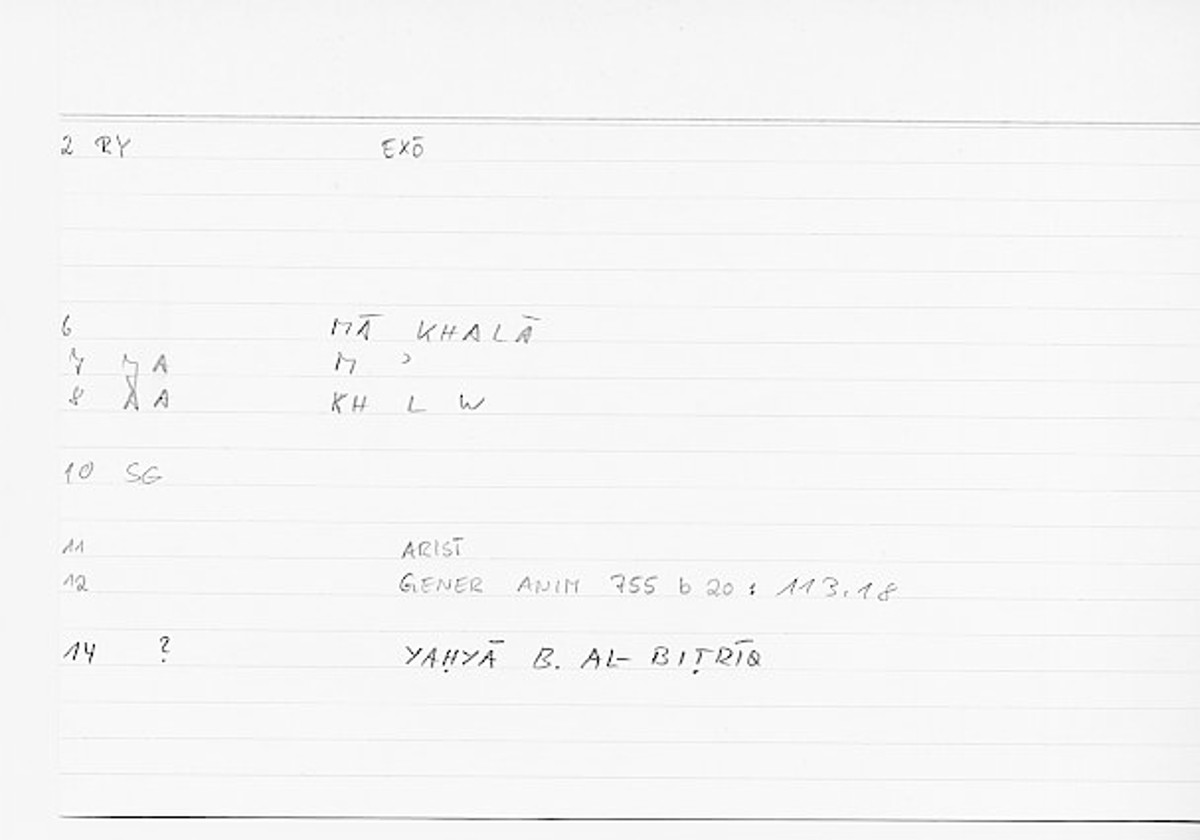 2 RY EXŌ
6 MĀ KHALĀ
7 A M ʾ
8 A KH L W
10 SG
11 ARIST
12 GENER ANIM 755 b 20 : 113.18
14 ? YAḤYĀ B. AL-BIṬRĪQ